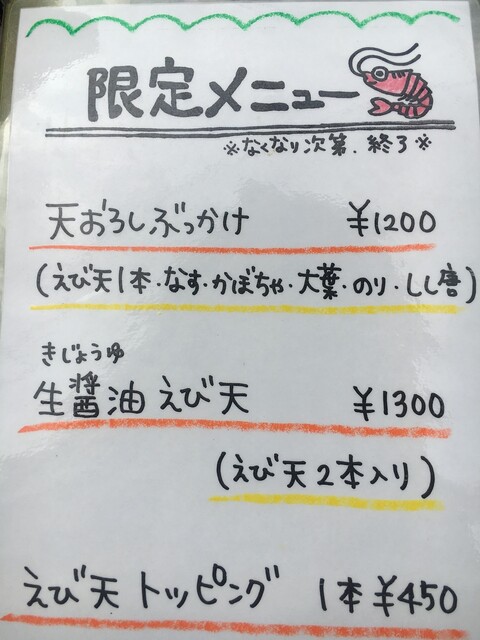 限定メニュー
※なくなり次第.終了※
天おろしぶっかけ ¥1200
(えび天1本・なす・かぼちゃ・大葉・のり・しし唐)
きじょうゆ
生醤油えび天 ¥1300
(えび天2本入り)
えび天トッピング 1本¥450